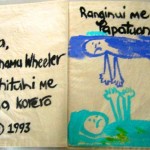 a,
hama Wheeler
hituhi me
ng korero
© 1993
Ranginui me
Papatuan